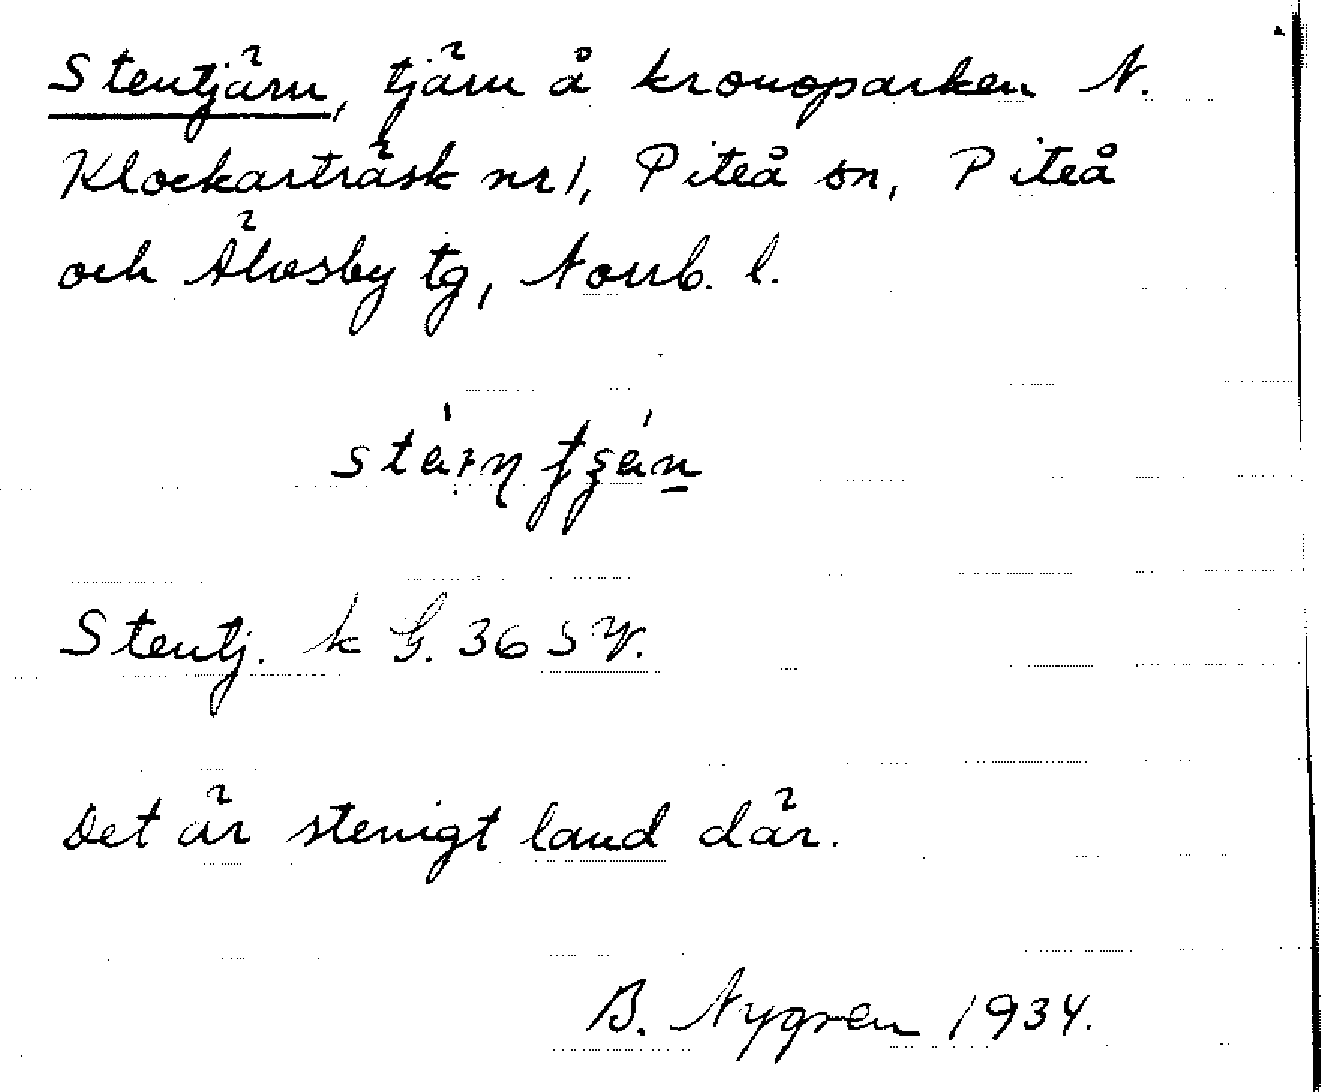 Stentjärn, tjärn å kronoparken N.
Klockarträsk nr 1, Piteå sn, Piteå
och Älvsby tg, Norrb. l.
Stentj. k G. 36 SV.
Det är stenigt land där.
B. Nygren 1934.